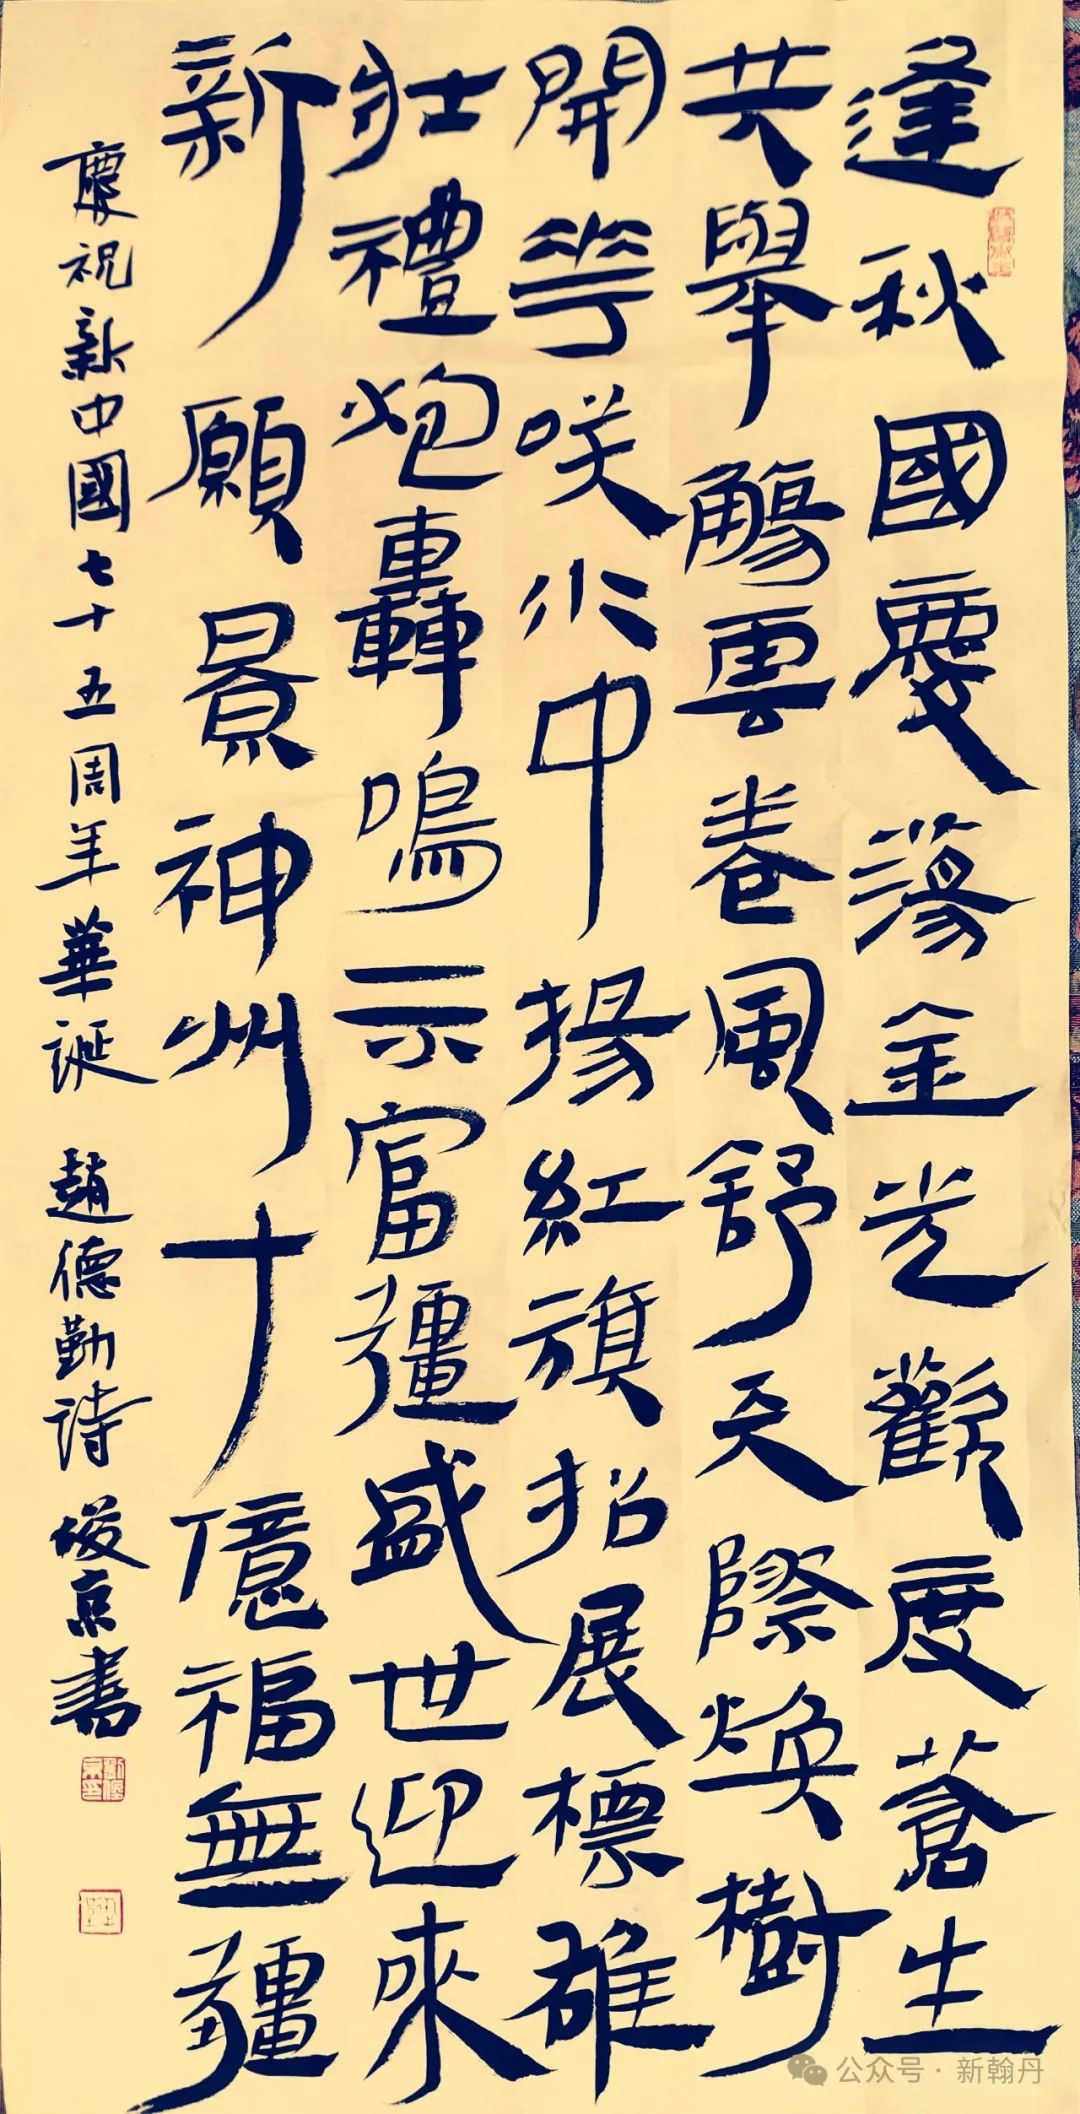 逢秋國慶蕩金光歡度蒼生
共舉觴雲卷風舒天際煥樹
開花咲中揚紅旗招展標雄
壯禮炮轟鳴示富彊盛世迎來
新願景神州十億福無疆
慶祝新中國七十五周年華誕 趙德勤詩 俊京書
公众号·新翰丹